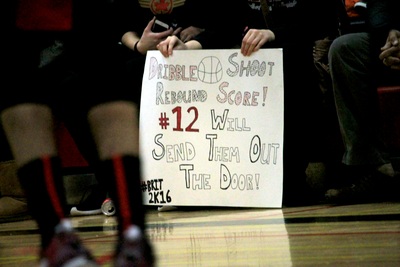 Dribble Shoot
Rebound Score!
#12 Will
Send Them Out
The Door!
#BRIT
2K16